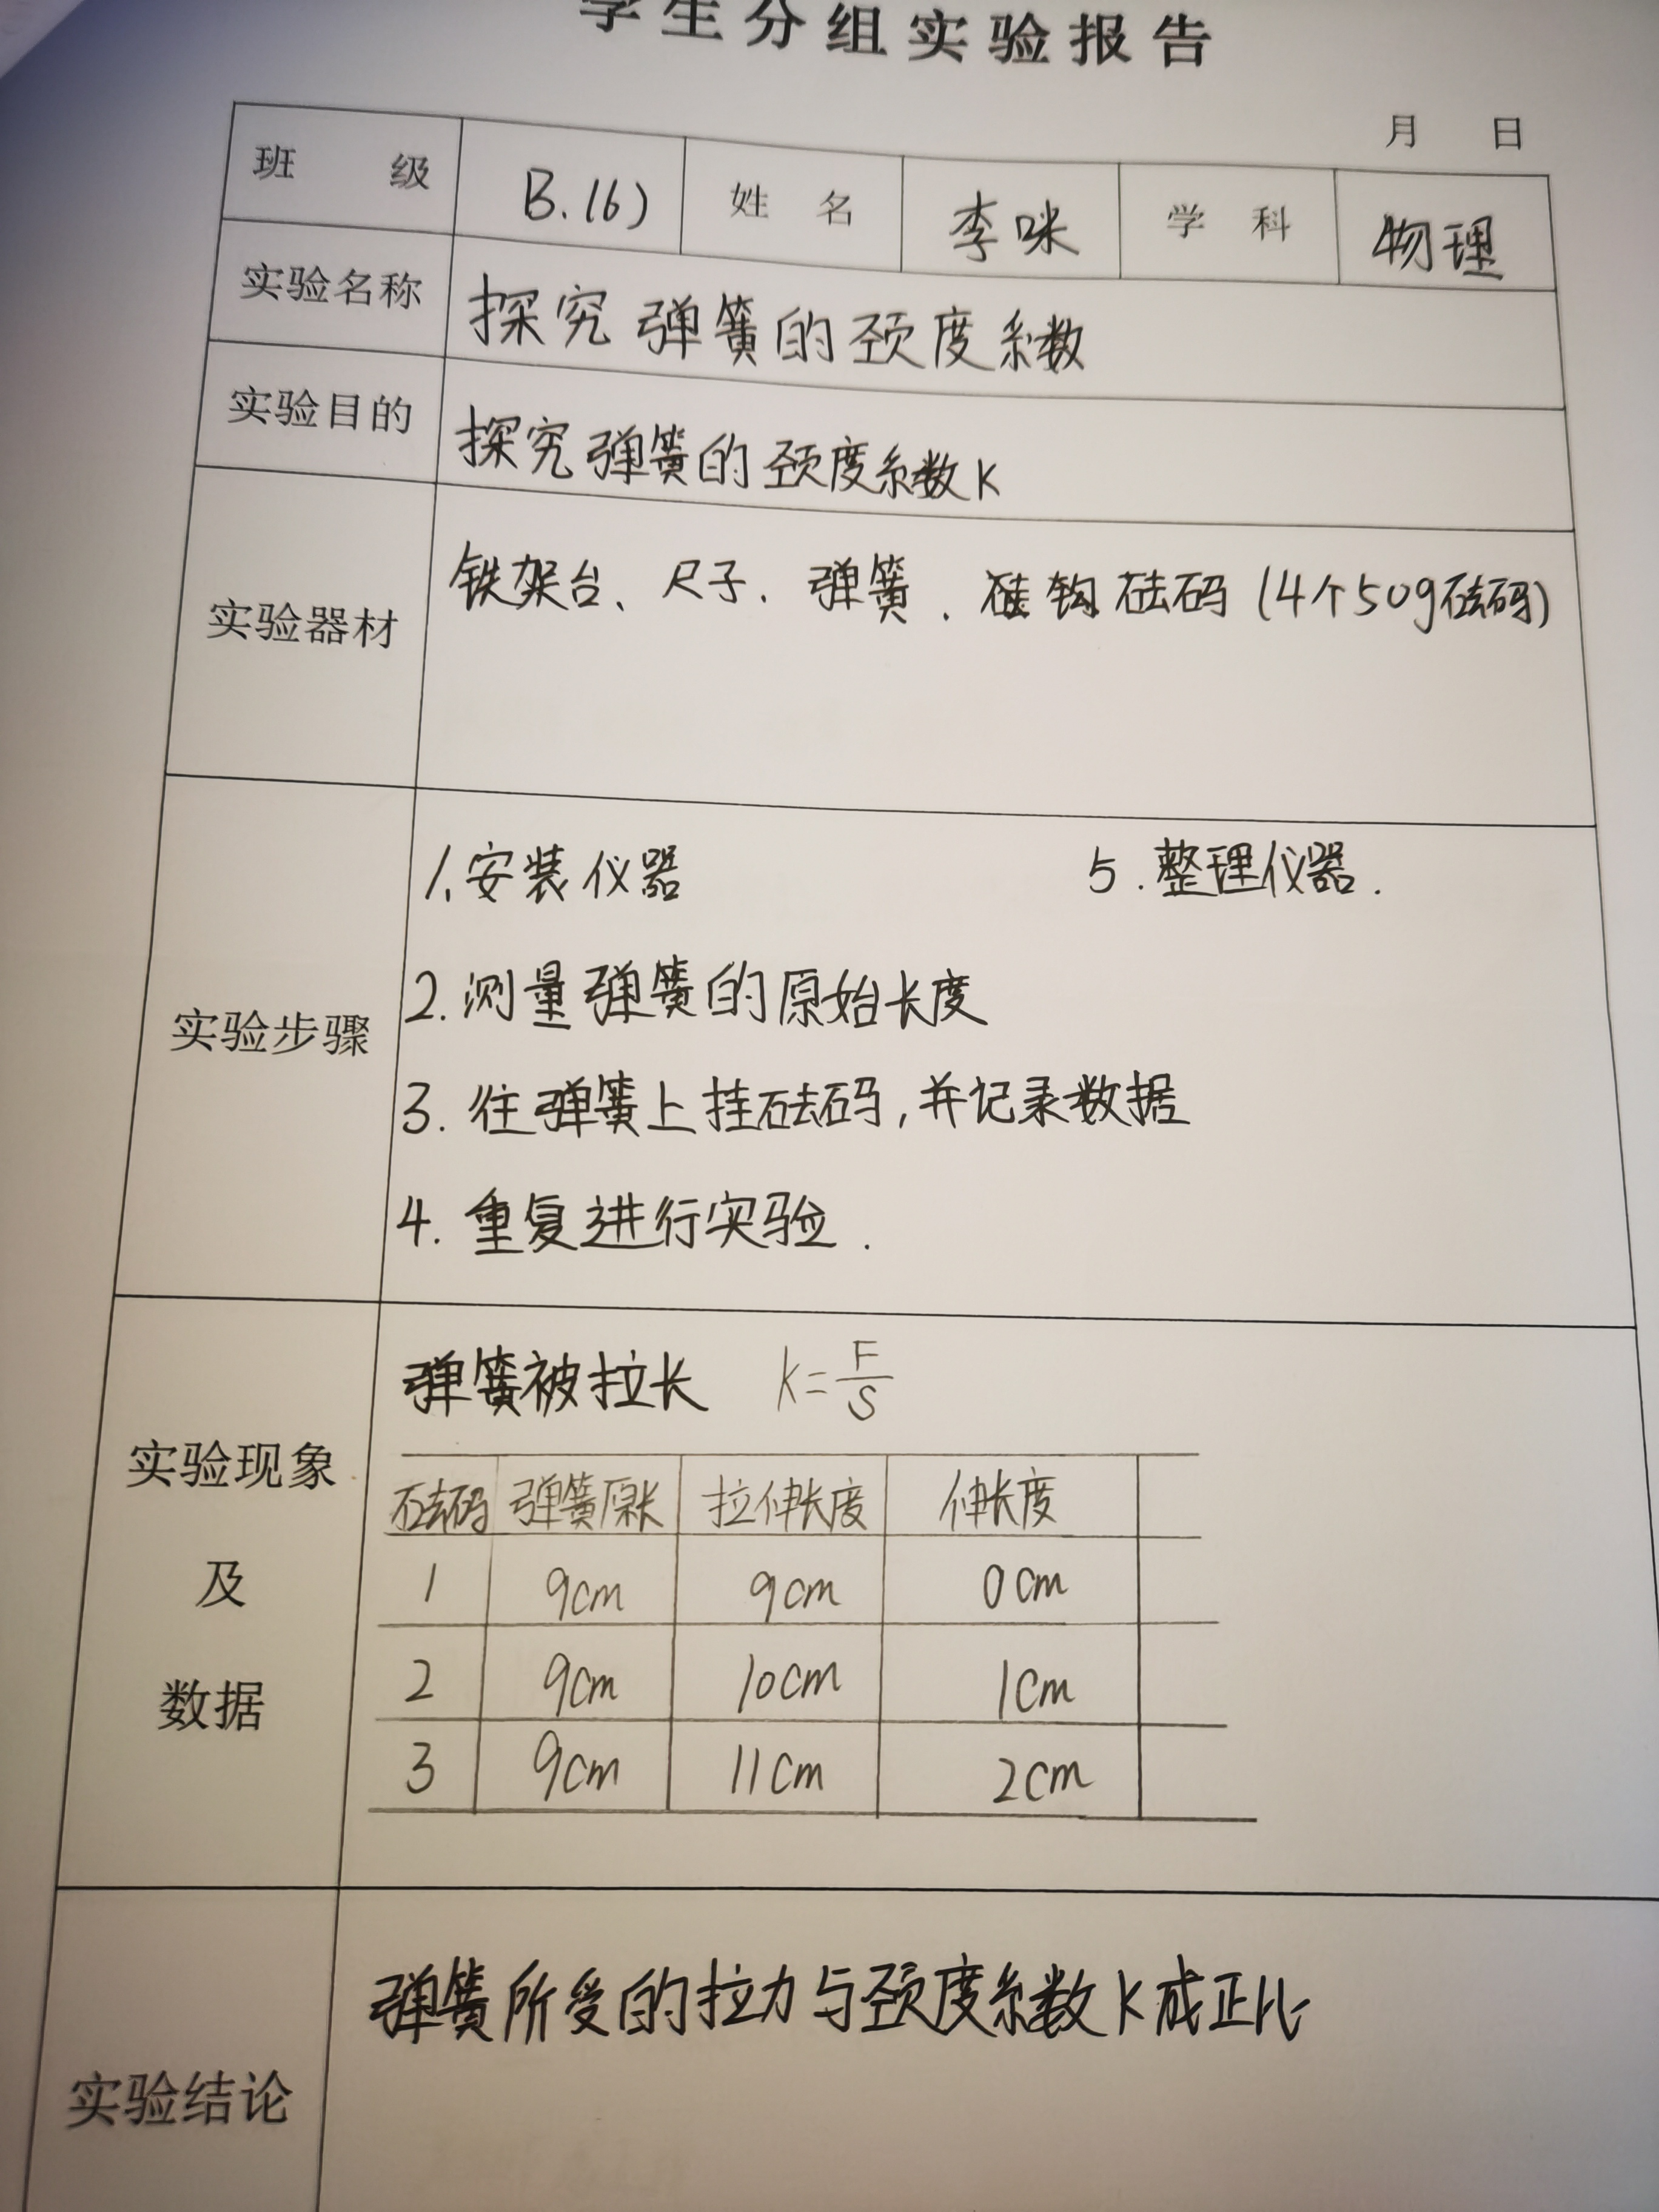 学生分组实验报告
月 日
班 级 B.(6) 姓 名 李咪 学 科 物理
实验名称 探究弹簧的颈度系数
实验目的 探究弹簧的颈度系数K
实验器材 铁架台、尺子、弹簧、 钩砝码(4个50g砝码)
实验步骤
1.安装仪器
2.测量弹簧的原始长度
3.往弹簧上挂砝码,并记录数据
4.重复进行实验.
5.整理仪器.
实验现象
及
数据
弹簧被拉长 k=F/S
砝码 弹簧原长 拉伸长度 伸长度
1 9cm 9cm 0cm
2 9cm 10cm 1cm
3 9cm 11cm 2cm
实验结论 弹簧所受的拉力与颈度系数K成正比